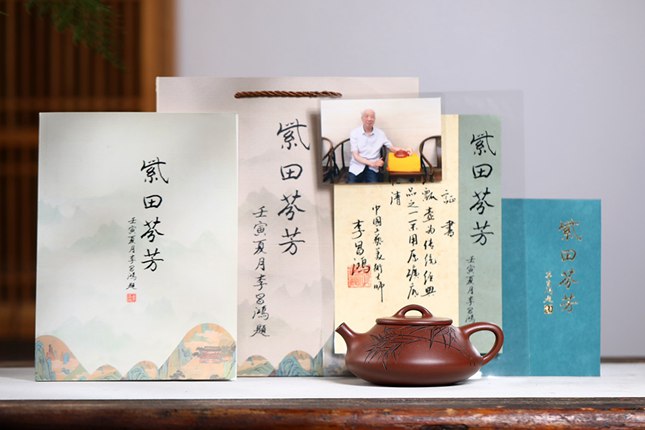 紫田芬芳
壬寅夏月李昌鸿题
紫田芬芳
壬寅夏月李昌鸿题
证书
瓢壶为传统经典
品之一
中国工艺美术大师
李昌鸿
紫田芬芳
壬寅夏月李昌鸿题
紫田芬芳